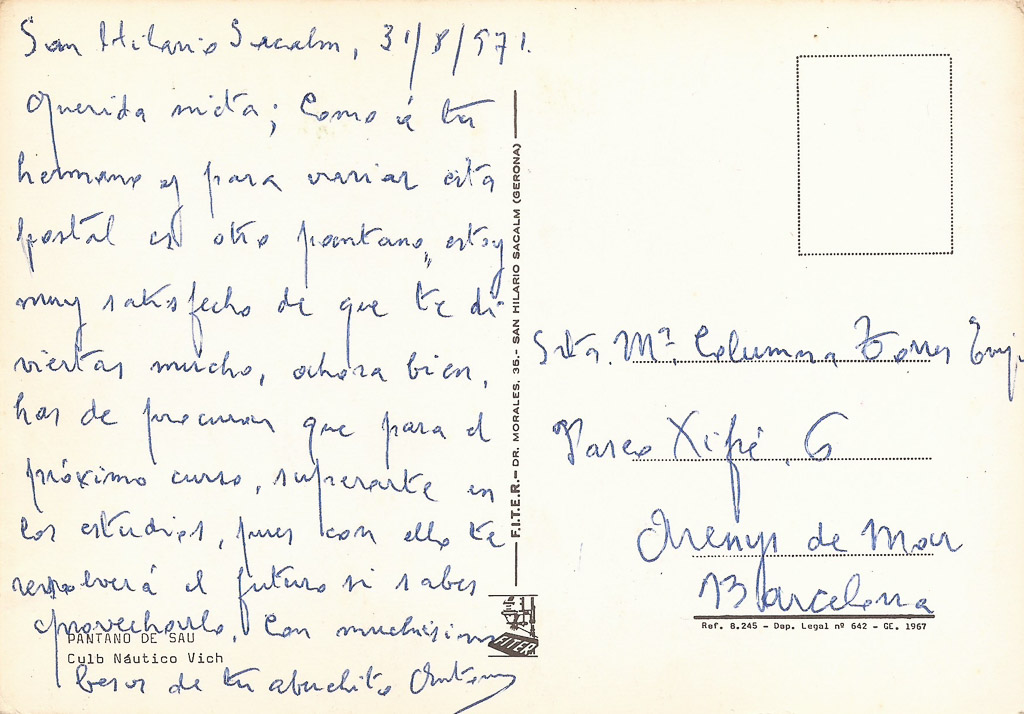 San Hilario Sacalm, 31/8/971.
Querida nieta; Como á tu
hermano y para variar esta
postal es otro pantano, estoy
muy satisfecho de que te di-
viertas mucho, ahora bien,
has de procurar que para el
próximo curso, superarte en
los estudios, pues con ello te
resolverá el futuro si sabes
aprovecharlo. Con muchisimos
besos de tu abuelito Antonio
PANTANO DE SAU
Culb Náutico Vich
F.I.T.E.R.- DR. MORALES, 35.- SAN HILARIO SACALM (GERONA)
FITER
Srta. Mª. Columna Torres
Paseo Xifré, 6
Arenys de Mar
Barcelona
Ref. 8.245 - Dep. Legal nº 642 - GE. 1967